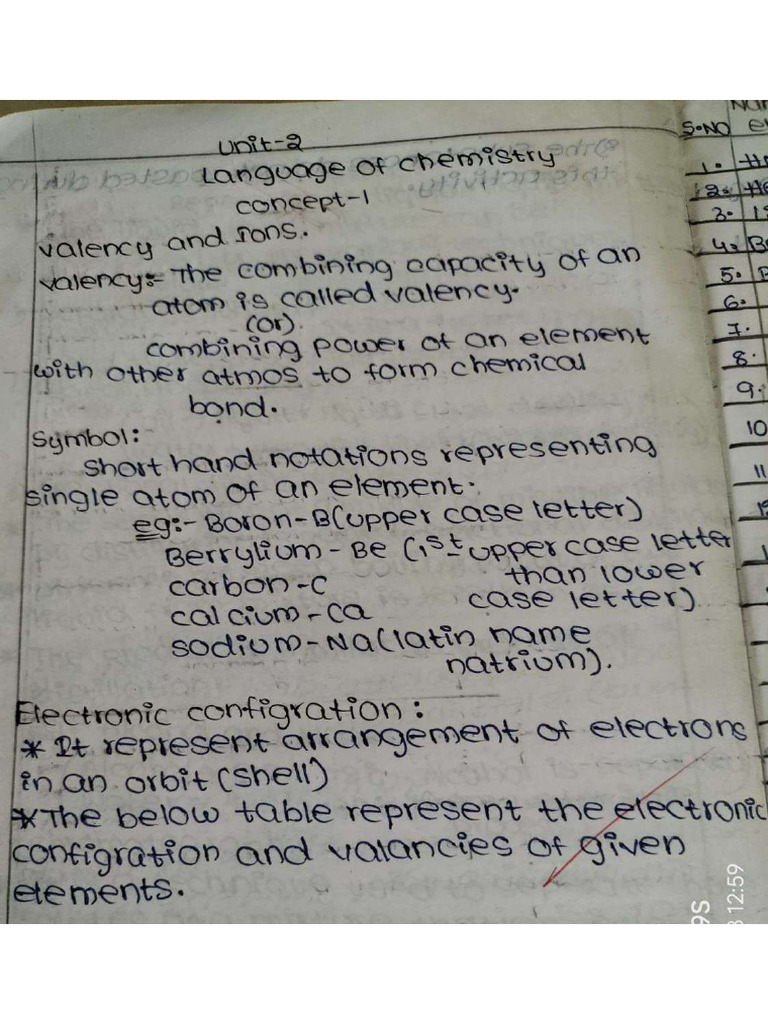 Unit-2
Language of chemistry
concept-1
valency and Ions.
valency:- The combining capacity of an
atom is called valency.
(or)
combining power of an element
with other atmos to form chemical
bond.
Symbol:
short hand notations representing
single atom of an element.
eg:- Boron-B(upper case letter)
Berrylium - Be (1st upper case letter
carbon-C than lower
calcium-Ca case letter)
sodium-Na(latin name
natrium).
Electronic configration:
* It represent arrangement of electrons
in an orbit (shell)
*The below table represent the electronic
configration and valancies of given
elements.
S.NO
1.
2.
3.
4.
5.
6.
7.
8.
9.
10
11
9S
12:59